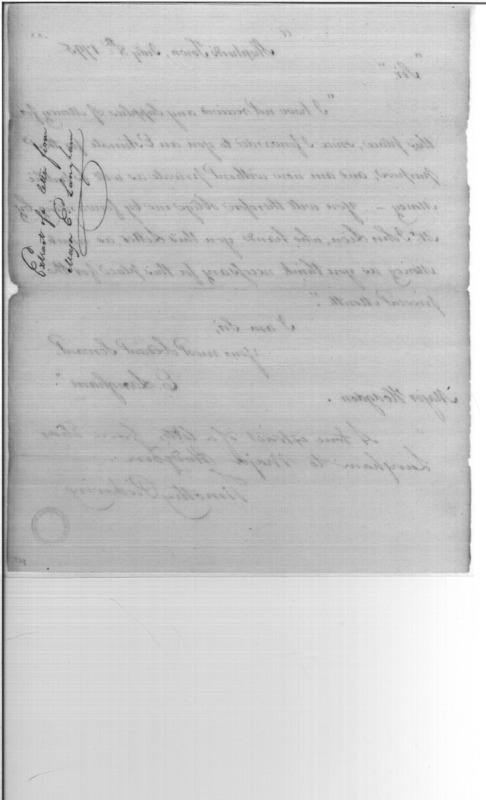 Extract of a letter from
Major E. Langham
Town, July 8th 1795
"Sir"
"I have not received any Supplies of Money for
this place, since I forwarded to you an Estimate
purpose, and am now without Friends as well
Money – You will therefore oblige me by
Mr John who hands you this Letter as
Money as you think necessary for this place for the
present Month".
I am Sir,
Your most Obedient Servant
E. Langham"
Major Hodgdon.
A true extract of a letter from Elias
Langham to Major Hodgdon.
Timothy Pickering